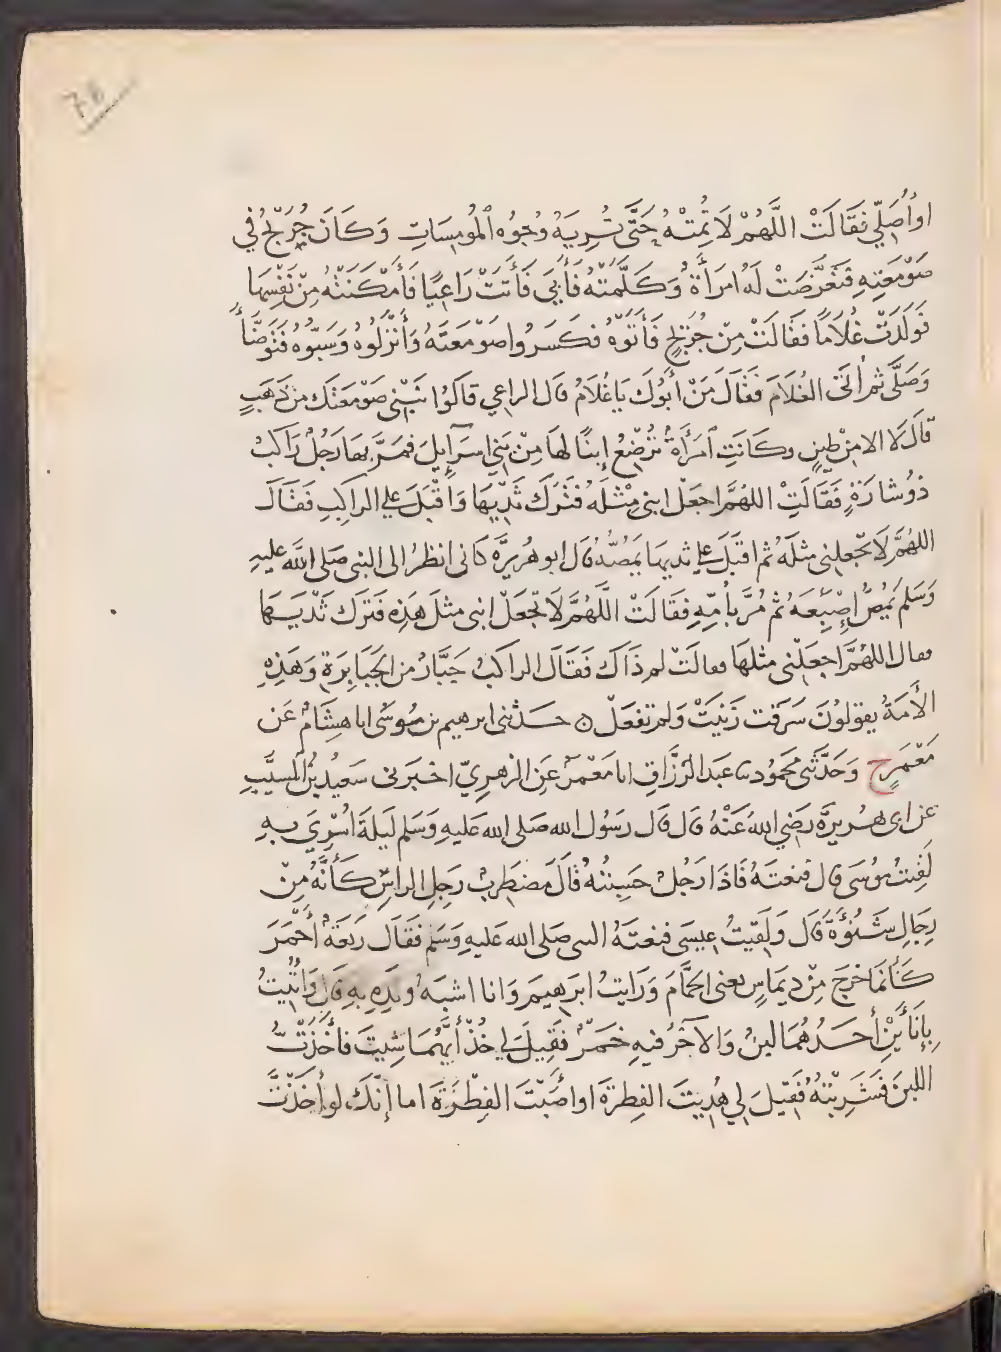 78
اَو أُصَلِّي فَقَالَتْ اللَّهُمَّ لَا تُمِتْهُ حَتَّى تُرِيَهُ وُجُوهَ الْمُومِسَاتِ وَكَانَ جُرَيْجٌ فِي
صَوْمَعَتِهِ فَتَعَرَّضَتْ لَهُ امْرَأَةٌ وَكَلَّمَتْهُ فَأَبَى فَأَتَتْ رَاعِيًا فَأَمْكَنَتْهُ مِنْ نَفْسِهَا
فَوَلَدَتْ غُلَامًا فَقَالَتْ مِنْ جُرَيْجٍ فَأَتَوْهُ فَكَسَرُوا صَوْمَعَتَهُ وَأَنْزَلُوهُ وَسَبُّوهُ فَتَوَضَّأَ
وَصَلَّى ثُمَّ أَتَى الغُلَامَ فَقَالَ مَنْ أَبُوكَ يَا غُلَامُ قَالَ الراعي قَالُوا نَبْنِي صَوْمَعَتَكَ مِنْ ذَهَبٍ
قَالَ لَا الا مِنْ طِينٍ وكَانَتِ امْرَأَةٌ تُرْضِعُ إبنًا لهَا مِنْ بَنِي اسرَآئِيلَ فَمَرَّ بِهَا رَجُلٌ رَاكِبٌ
ذُوشَارَةٍ فَقَالَتْ اللهُمَّ اجعَلْ ابنى مِثْلَهُ فَتَرَكَ ثَدْيَهَا وَأقْبَلَ على الراكِبِ فَقَالَ
اللهُمَّ لَا تَجْعلنِى مثلَهُ ثم اقبَلَ على ثديها يَمَصُّهُ قَالَ ابو هُرَيرَةَ كَأنى انظُرُ الى النبى صَلى الله عليهِ
وَسَلم يَمُصُّ إِصْبَعَهُ ثم مُرَّ بأمَةٍ فقَالَتْ اللَّهُمَّ لَا تجْعَلْ ابنى مثلَ هَذِهِ فَتَرَكَ ثَدْيَهَا
فقال اللهُمَّ اجعَلْنى مثلهَا فقالَتْ لم ذَاكَ فَقَالَ الراكبُ جَبَّارٌ من الجَبَابِرَةِ وَهَذِهِ
الأمَةُ يقولُونَ سَرَقت زَنَيَتْ وَلم تَفعَلْ ۞ حَدثنى ابرهيم بن مُوسَى انا هِشَامٌ عَن
مَعْمَرٍ ح وَحَدَّثَنى مَحمُودٌ نا عَبد الرَزَّاقِ انا مَعْمَرٌ عَنِ الزهرِيِّ اخبَرَنى سَعِيدُ بْنُ المسيَّبِ
عَن ابى هُرَيرَةَ رَضِي اللهُ عَنْهُ قَالَ قَالَ رَسُولُ الله صَلى الله عَليهِ وَسَلم لَيلَةَ أسْرِيَ بِهِ
لَقِيتُ مُوسَى قال فنعتَهُ فَاذَا رَجُلٌ حَسِبتُهُ قَالَ مضطَرِبٌ رَجِلِ الراسِ كَأَنَّهُ مِنْ
رِجَالِ شَنُوءَةَ قَال وَلَقيتُ عيسَى فنعتَهُ النبى صَلى الله عَليهِ وَسَلم فَقَالَ رَبعَةٌ أحْمَرَ
كَأنمَا خرَجَ مِنْ دِيمَاسٍ يعنى الحمَّامَ وَرَايتُ ابرهيمَ وَانا اشبَهُ وَلَدِهِ بِهِ قَالَ وَأُتِيتُ
بِإنَائَيْنِ أحَدُهُمَا لبنٌ وَالآخَرُ فيهِ خَمرٌ فَقِيلَ لِي خُذْ أَيَّهُمَا شِيتَ فأخَذْتُ
اللبَنَ فَشَرِبْتُهُ فَقِيلَ لي هُدِيتَ الفِطرَةَ او أصَبْتَ الفِطْرَةَ اما إنَّكَ لو أخَذْتَ